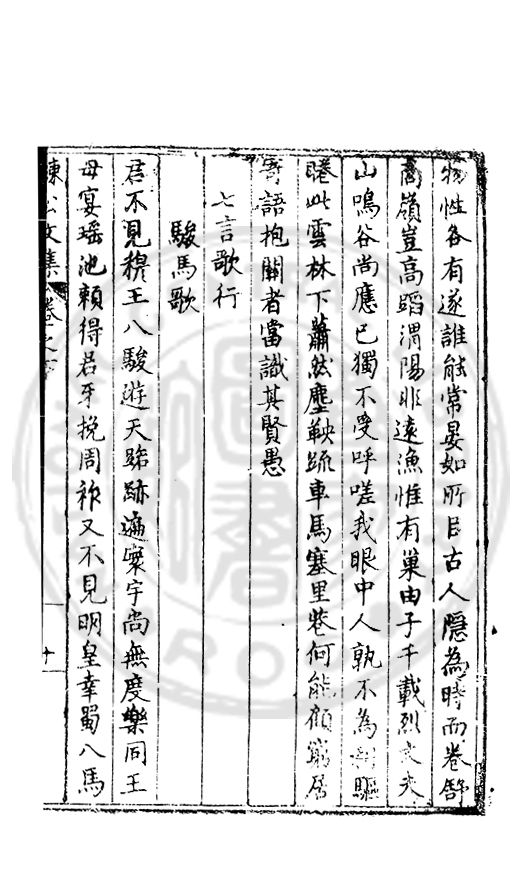 物性各有遂誰能常晏如所㠯古人隱為時而卷舒
商嶺豈高蹈渭陽非遠漁惟有巢由子千載烈丈夫
山鳴谷尚應已獨不受呼嗟我眼中人孰不為利驅
睠此雲林下蕭然塵鞅疏車馬塞里巷何能顧窮居
寄語抱關者當識其賢愚
七言歌行
駿馬歌
君不見穆王八駿遊天踪跡遍寰宇尚無度樂同王
母宴瑶池賴得君牙挽周祚又不見明皇幸蜀八馬
陳公文集卷之
十